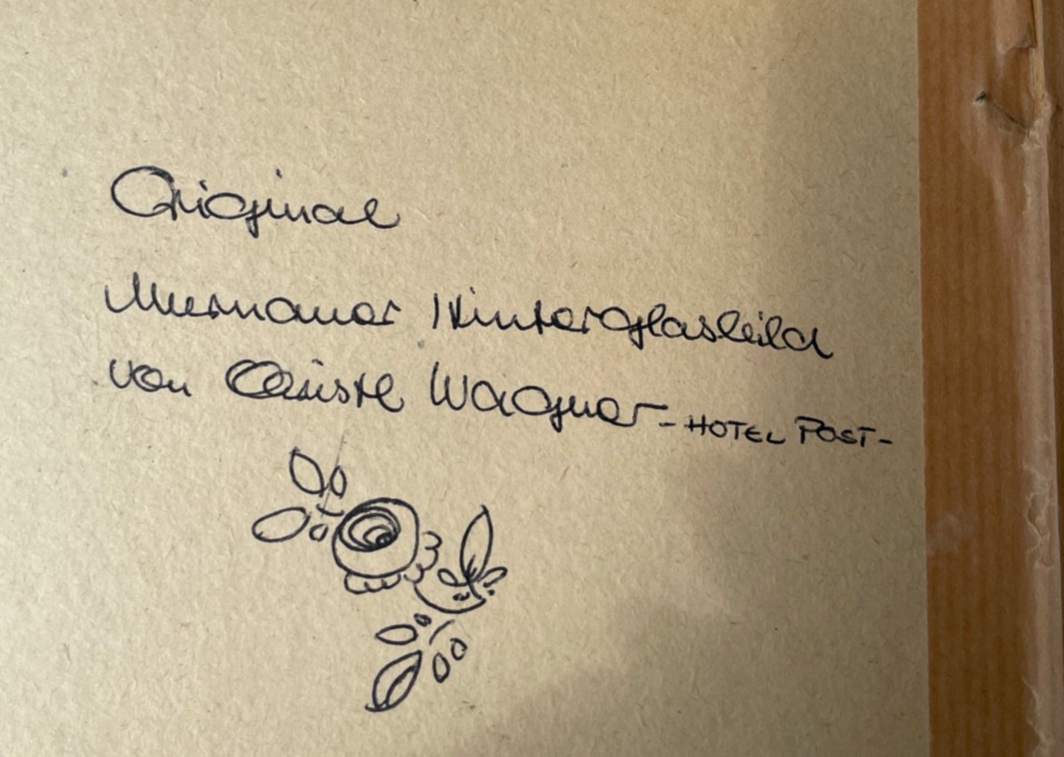 Original
Murnauer Hinterglasbild
von Christl Wagner - HOTEL POST -